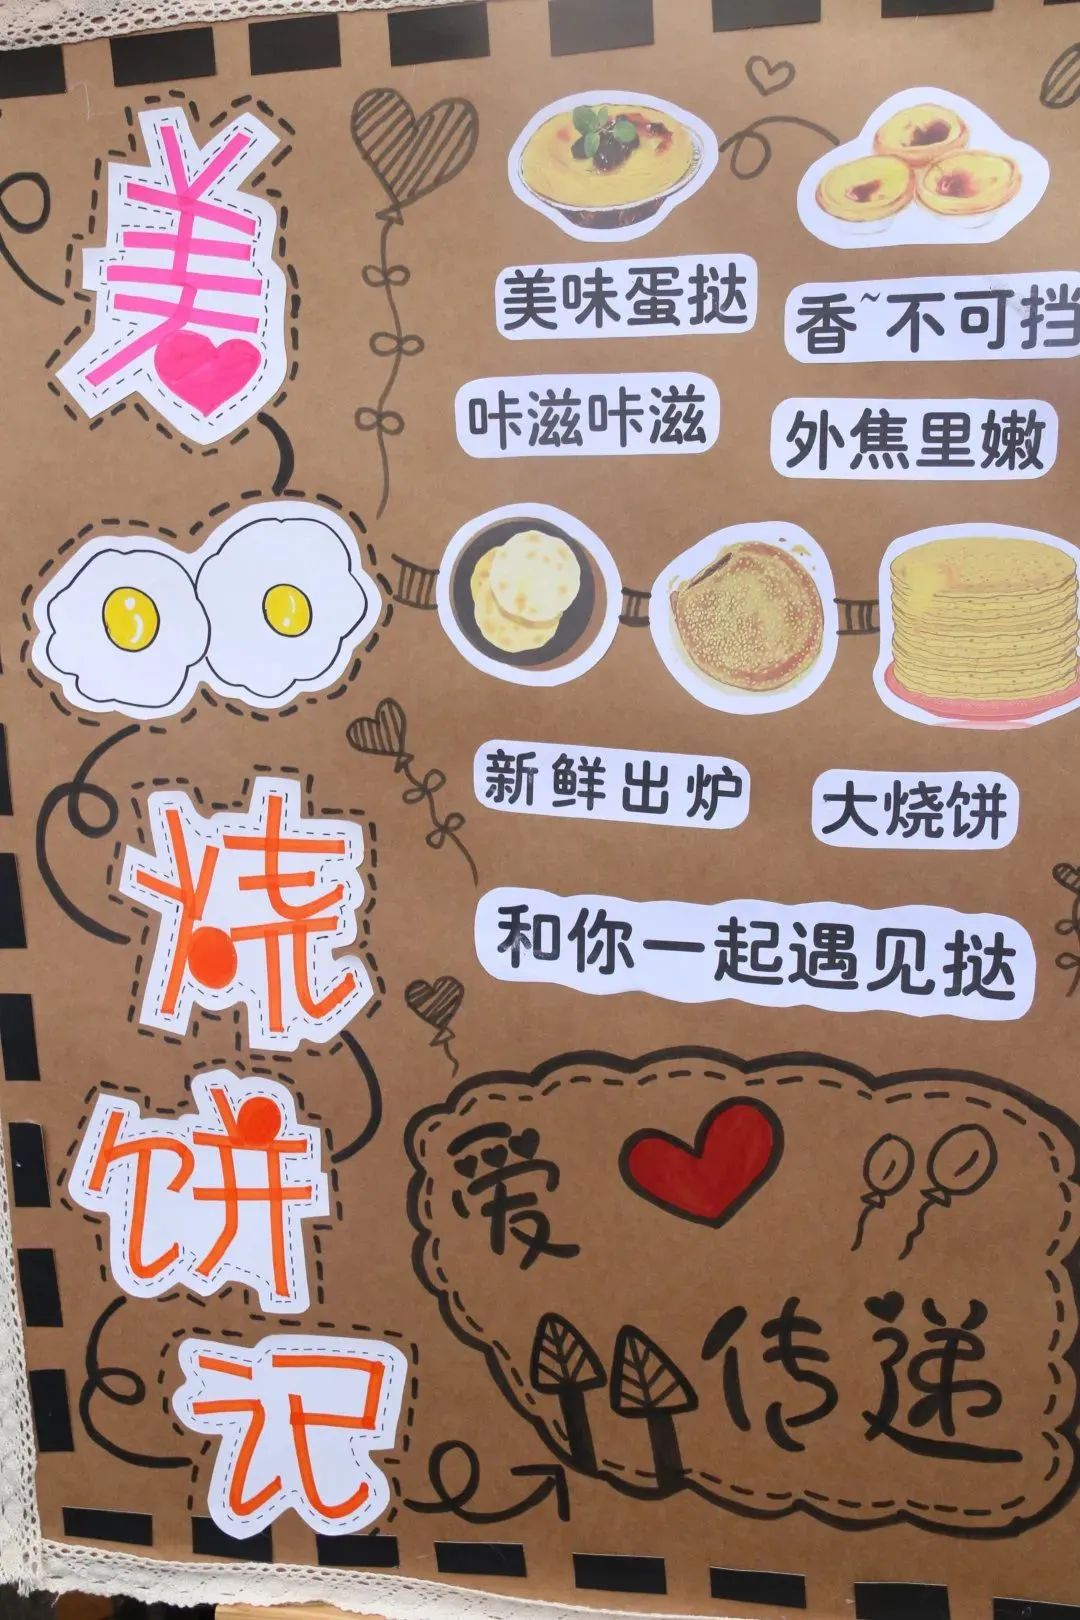 美
烧
饼
记
美味蛋挞
香~不可挡
咔滋咔滋
外焦里嫩
新鲜出炉
大烧饼
和你一起遇见挞
爱
传递